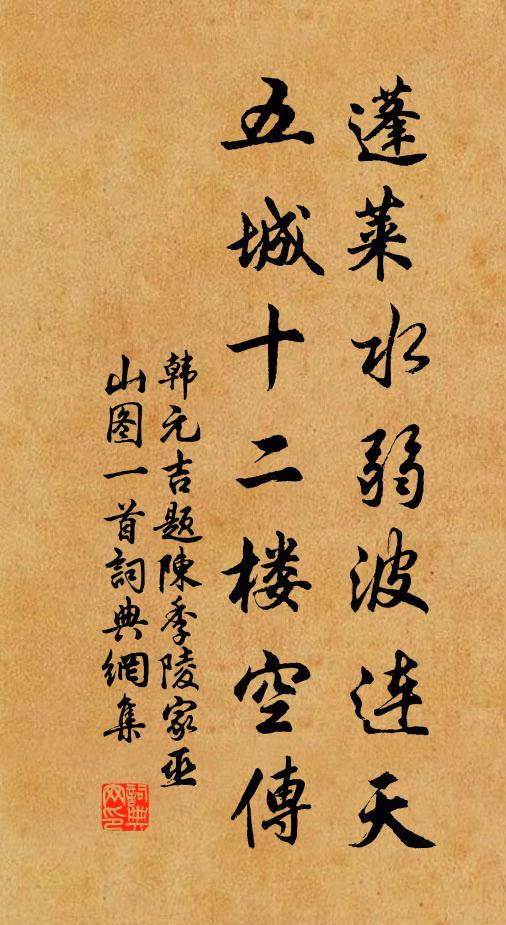 蓬萊水弱波連天
五城十二楼空傳
韩元吉题陳季陵家巫
山图一首詞典網集
詞典網印